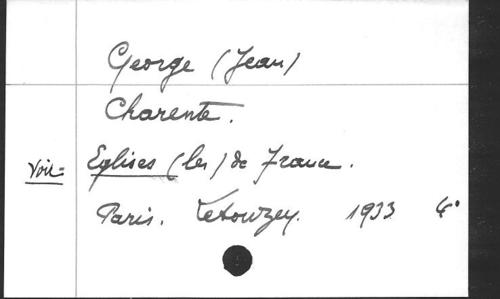 George (Jean)
Charente.
Voir = Eglises (les) de France.
Paris. Letouzey. 1933 4°